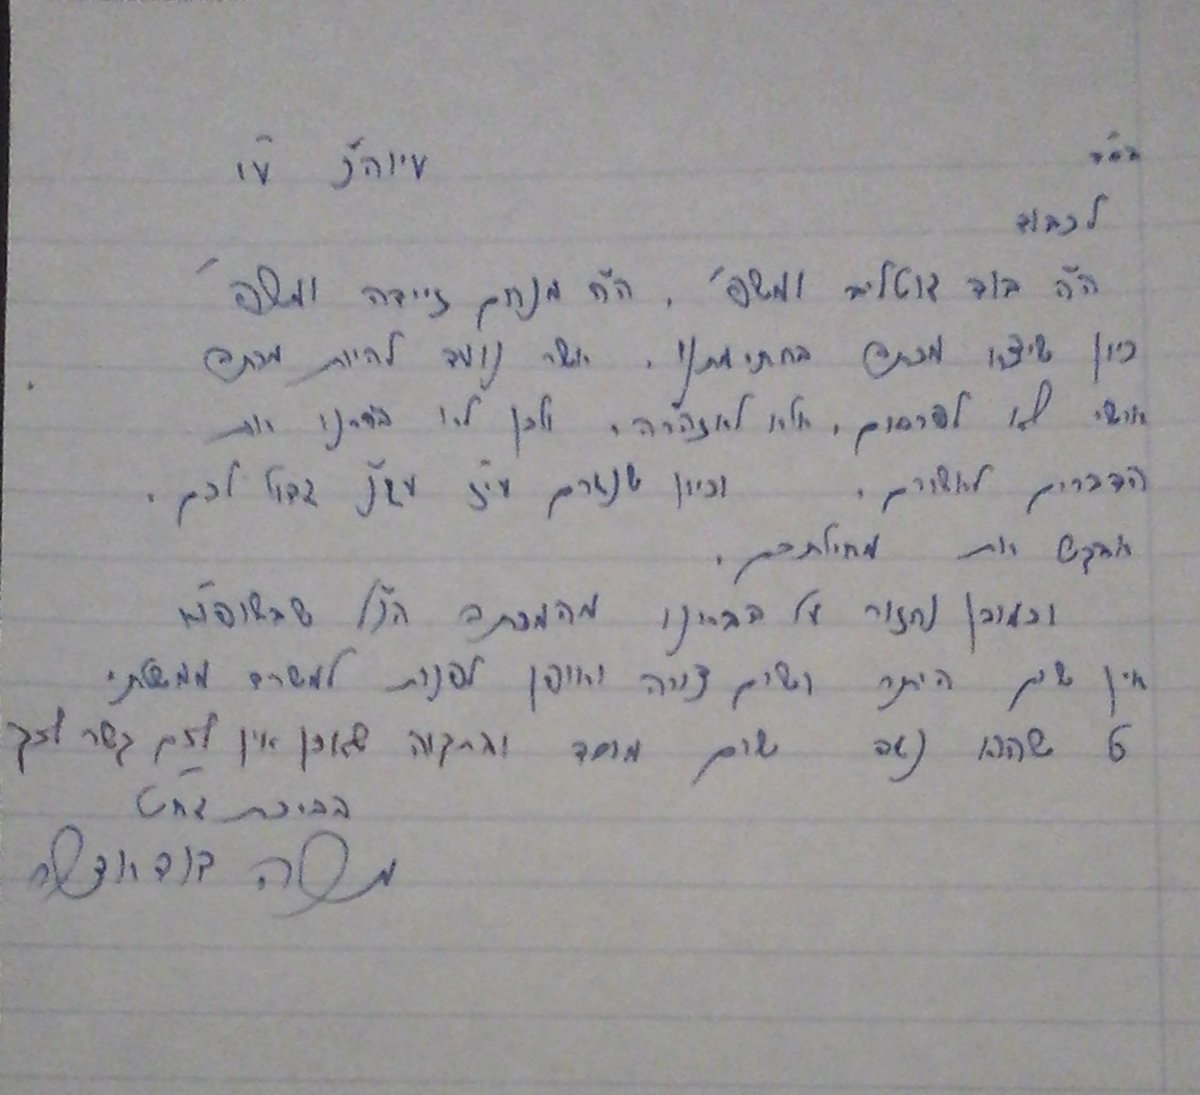 בס"ד עיוה"כ ע"ו
לכבוד
הר"ר דוד גוטליב ומשפ', הר"ר מנחם זיידה ומשפ'
כיון שיצא מכתב בחתימתנו, אשר נועד להיות מכתב
אישי לא לפרסום, אלא לאזהרה, ולכן לא בררנו את
הדברים לאשורם, וכיון שנגרם עי"ז עגנ גדול לכם,
אבקש את מחילתכם,
וכמובן נחזור על דברינו מהמכתב הנ"ל שבשופו"א
אין שום היתר בשום צורה ואופן לפנות למשרד ממשלתי
שהוא נגד שום מוסד ובתקוה שאכן אין לזה קשר לזה
בברכת גח"ט
משה דוד